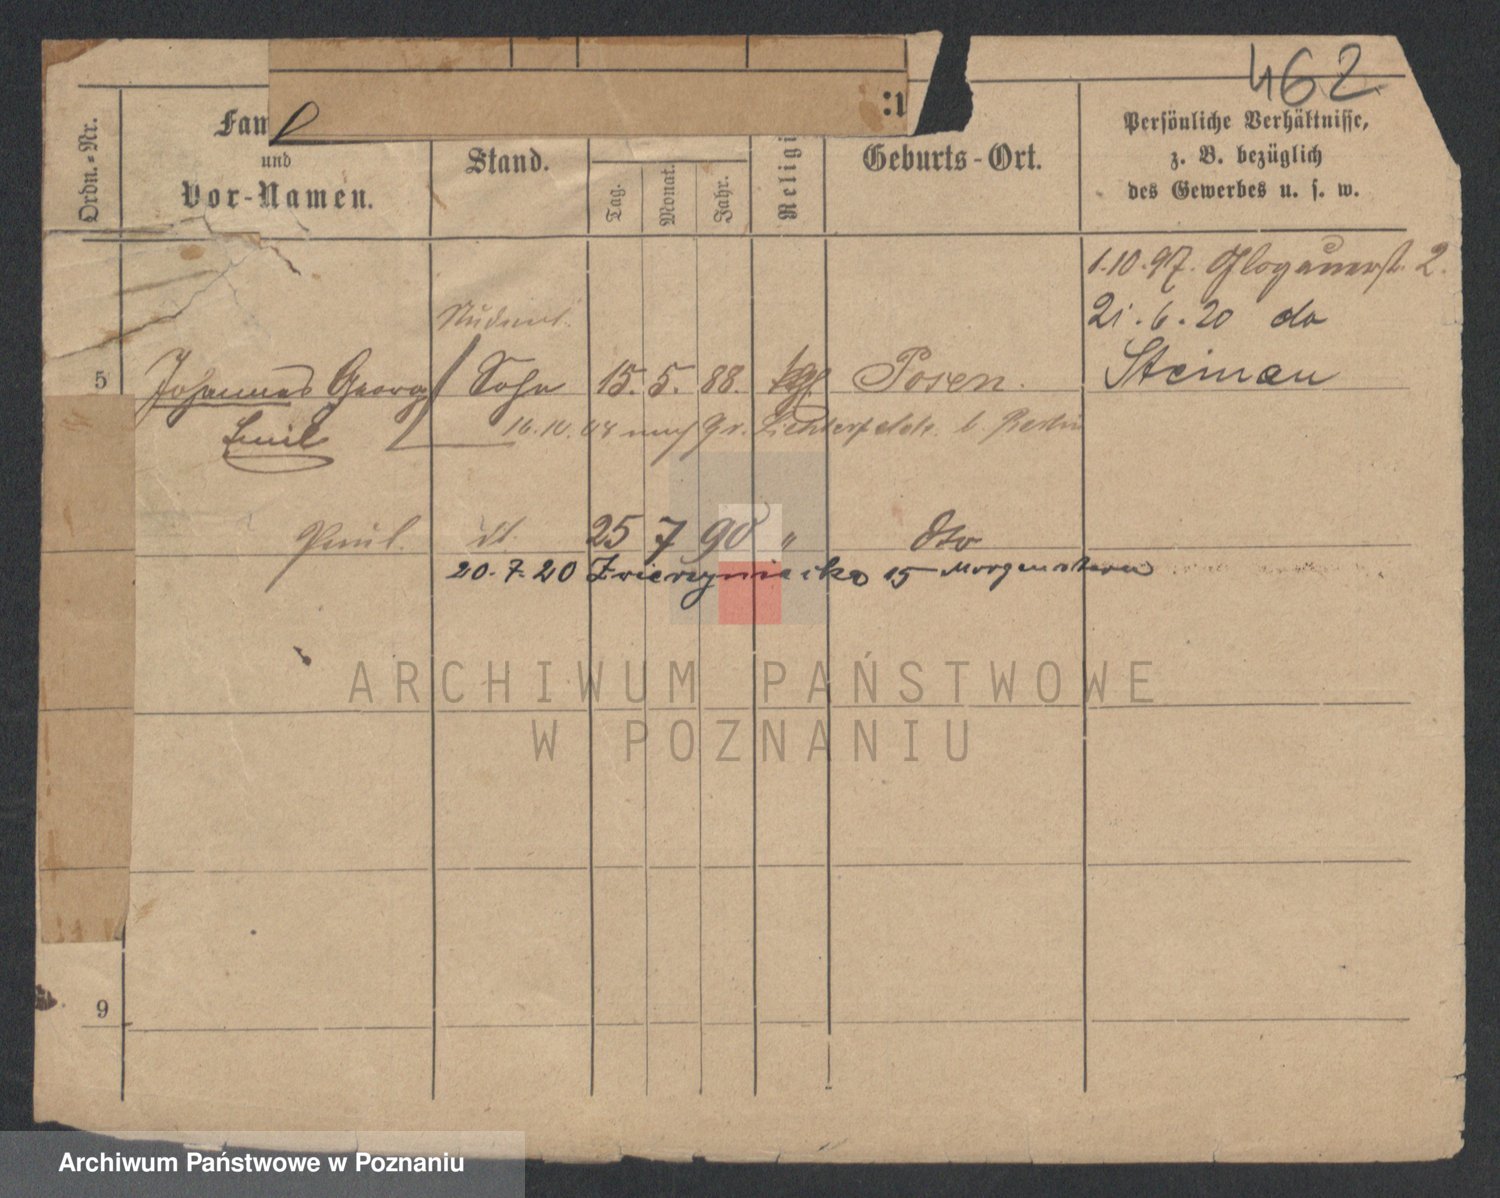 462
Fam
und
Vor-Namen.
Ordn.-Nr.
Stand.
Tag.
Monat.
Jahr.
Religi
Geburts-Ort.
Persönliche Verhältnisse,
z. B. bezüglich
des Gewerbes u. s. w.
1.10.97. Glogauerstr. 2.
21.6.20 do
Steinau
Student.
5 Johannes Georg Sohn 15. 5. 88. Posen.
Emil
16.10.08 nach Gr. Lichterfelde b Berlin
Paul. dt. 25 7 90 " dto
20.7.20 Zwierzyniecka 15 Morgenstern
9
ARCHIWUM PAŃSTWOWE
W POZNANIU
Archiwum Państwowe w Poznaniu